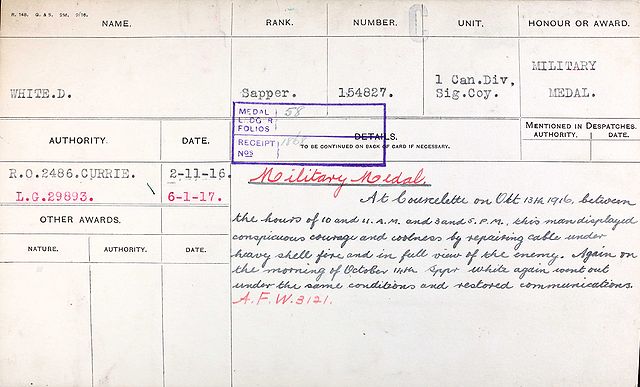 R. 148. G. & S. 2M. 9/16.
NAME.
RANK.
NUMBER.
UNIT.
HONOUR OR AWARD.
WHITE.D.
Sapper.
154827.
1 Can.Div,
Sig.Coy.
MILITARY
MEDAL.
MEDAL 58
LEDGER
FOLIOS
RECEIPT
Nos
DETAILS.
TO BE CONTINUED ON BACK OF CARD IF NECESSARY.
MENTIONED IN DESPATCHES.
AUTHORITY.
DATE.
AUTHORITY.
DATE.
R.O.2486.CURRIE.
2-11-16.
L.G.29893.
6-1-17.
OTHER AWARDS.
NATURE.
AUTHORITY.
DATE.
Military Medal.
At Courcelette on Oct 13th 1916, between
the hours of 10 and 11. A.M. and 3 and 5. P.M., this man displayed
conspicuous courage and coolness by repairing cable under
heavy shell fire and in full view of the enemy. Again on
the morning of October 14th Sppr White again went out
under the same conditions and restored communications.
A.F.W.3121.